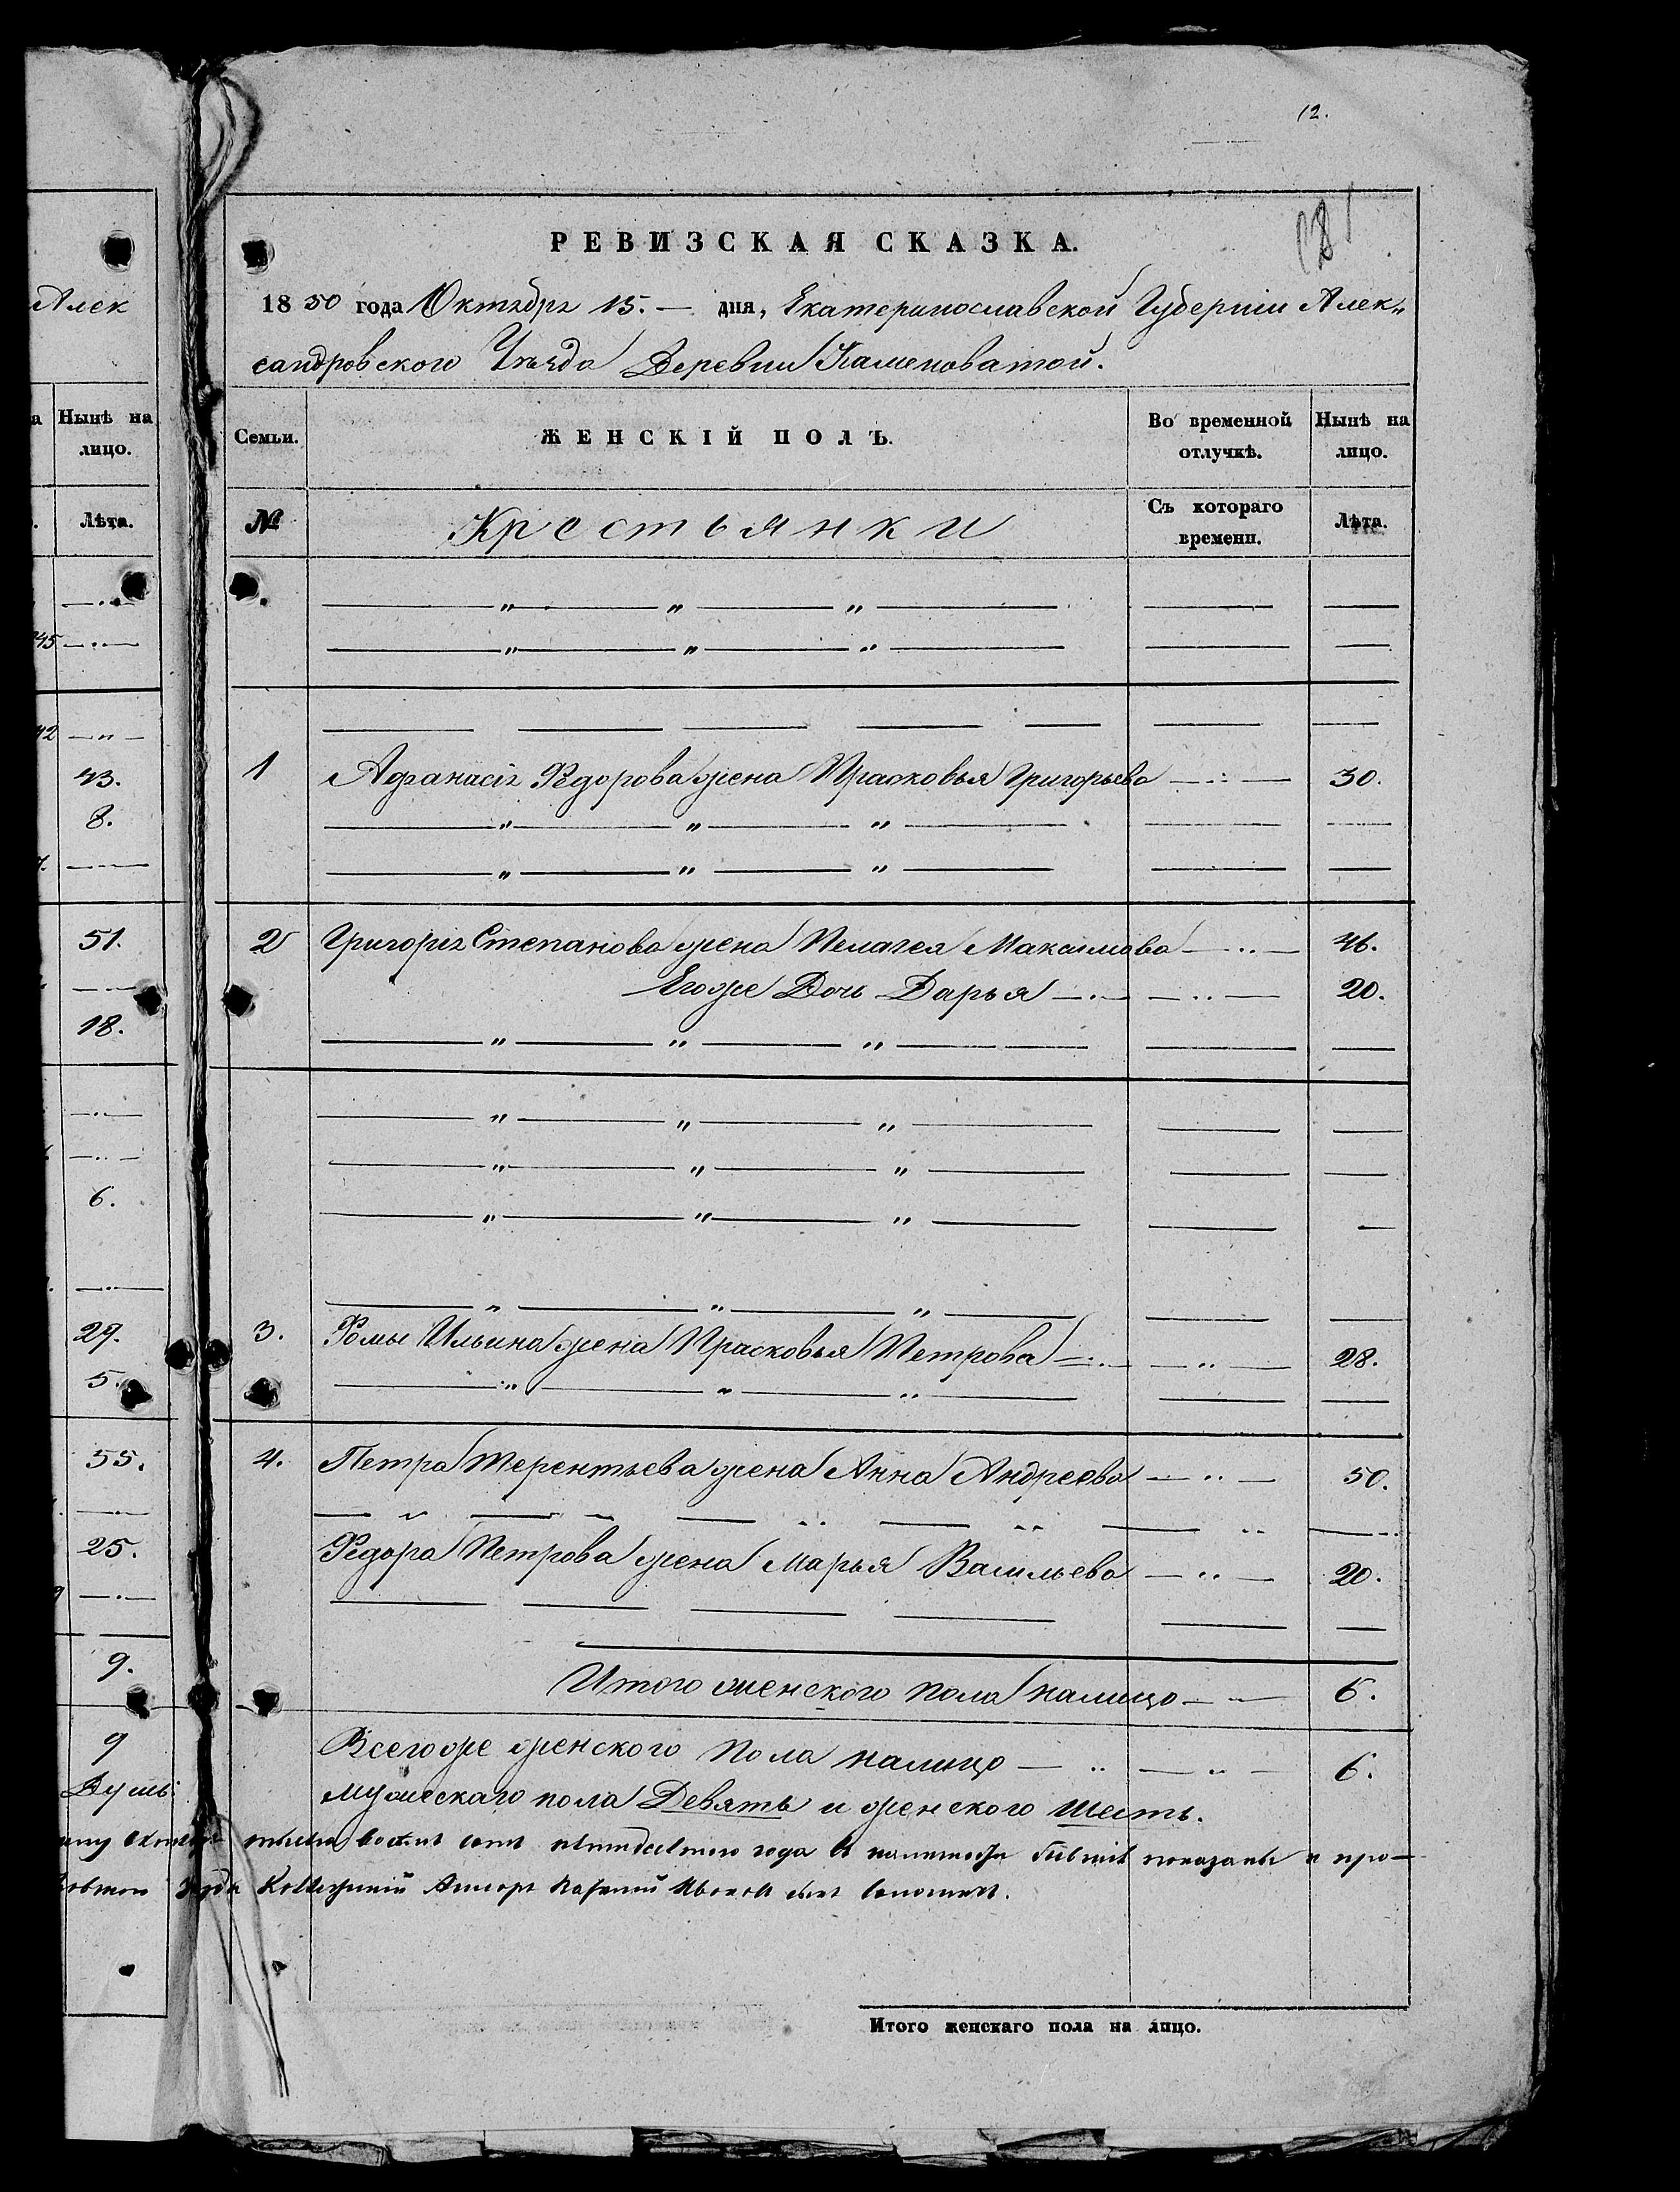 12.
181
РЕВИЗСКАЯ СКАЗКА.
Алек
1850 года Октября 15. — дня, Екатеринославской Губернии Алек„
сандровского Уѣзда Деревни Каменоватой.
Нынѣ на лицо.
Семьи. ЖЕНСКІЙ ПОЛЪ. Во временной отлучкѣ. Нынѣ на лицо.
Лѣта.
№ Крестьянки Съ котораго времени. Лѣта.
43.
1 Афанасія Федорова жена Прасковья Григорьева 30.
8.
51.
2 Григорія Степанова жена Пелагея Максимова 46.
Егоже Дочь Дарья 20.
18.
6.
29.
3. Фомы Ильина жена Прасковья Петрова 28.
5.
55.
4. Петра Терентьева жена Анна Андреева 50.
25.
Федора Петрова жена Марья Васильева 20.
9.
Итого женского пола налицо 6.
9
Всегоже женского пола налицо 6.
Душъ.
Мужескаго пола Девять и женского шесть.
года показаны и про—
Итого женскаго пола на лицо.